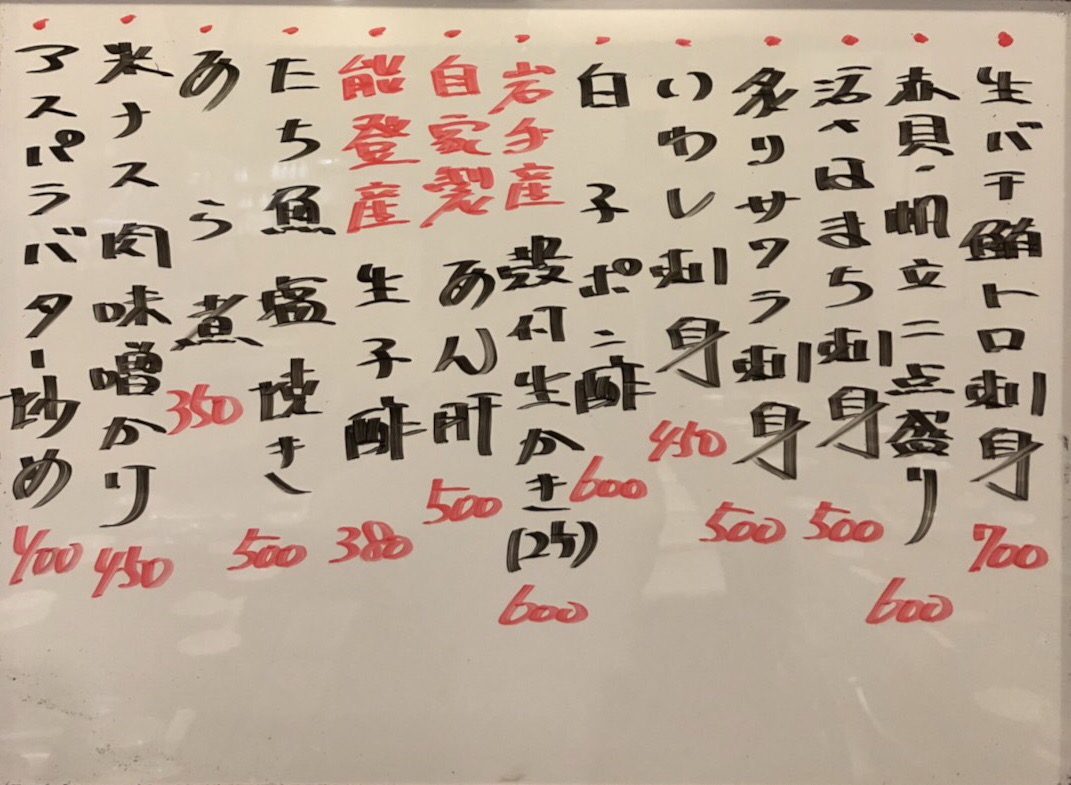 生バチ鮪トロ刺身 700
赤貝・帆立二点盛り 600
活〆はまち刺身 500
炙りサワラ刺身 500
いわし刺身 450
白子ポン酢 600
岩手産殻付生かき(2ケ) 600
自家製あん肝 500
能登産生子酢 380
たち魚塩焼き 500
あら煮 350
米ナス肉味噌かけ 450
アスパラバター炒め 400